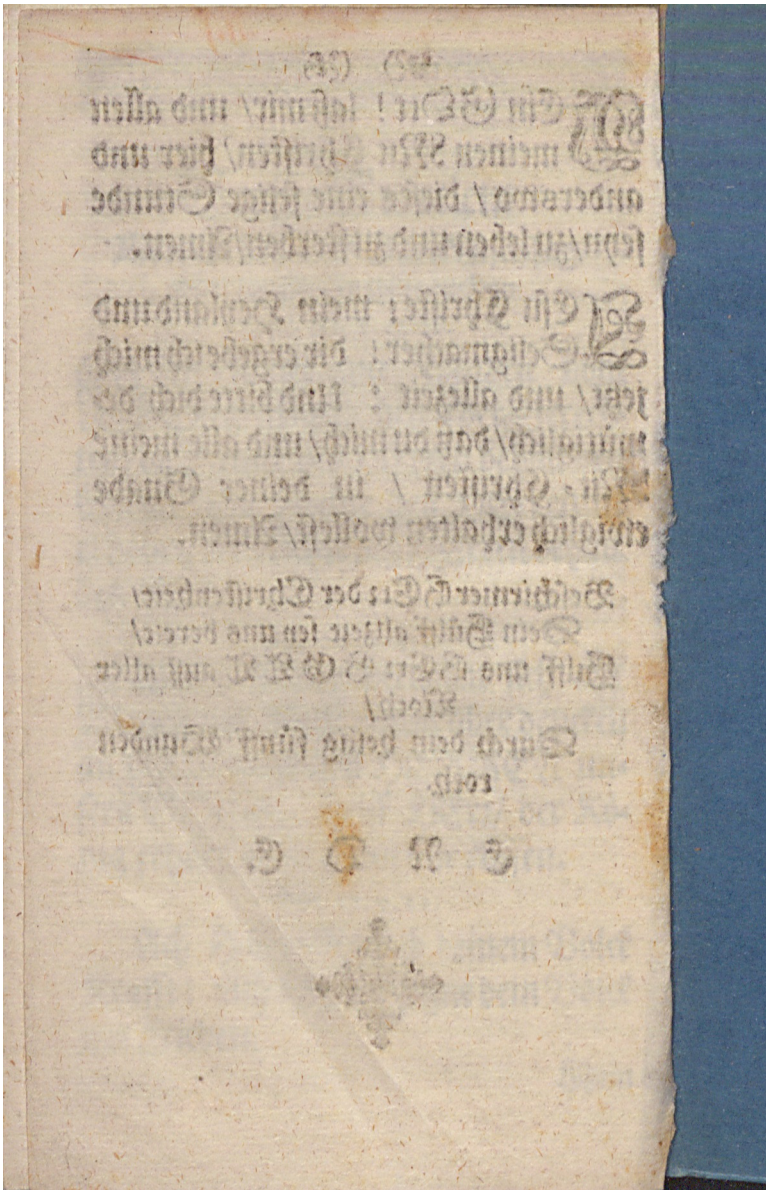 MEin GOtt! laß mir/ und allen
meinen Mit Christen/ hier und
anderstwo / dieses eine selige Stunde
seyn/zu leben und zu sterben/Amen.
JEsu Christe; mein Heyland und
Seligmacher! dir ergebe ich mich
jetzt/ und allezeit : Und bitte dich de-
mütiglich/daß du mich/ und alle meine
Mit-Christen / in deiner Gnade
ewiglich erhalten wollest/Amen.
Beschirmer HErr der Christenheit/
Dein Hülff allzeit sey uns bereit/
Hilff uns HErr GOTT auß aller
Noth/
Durch dein heilig fünff Wunden
roth.
E N D E.